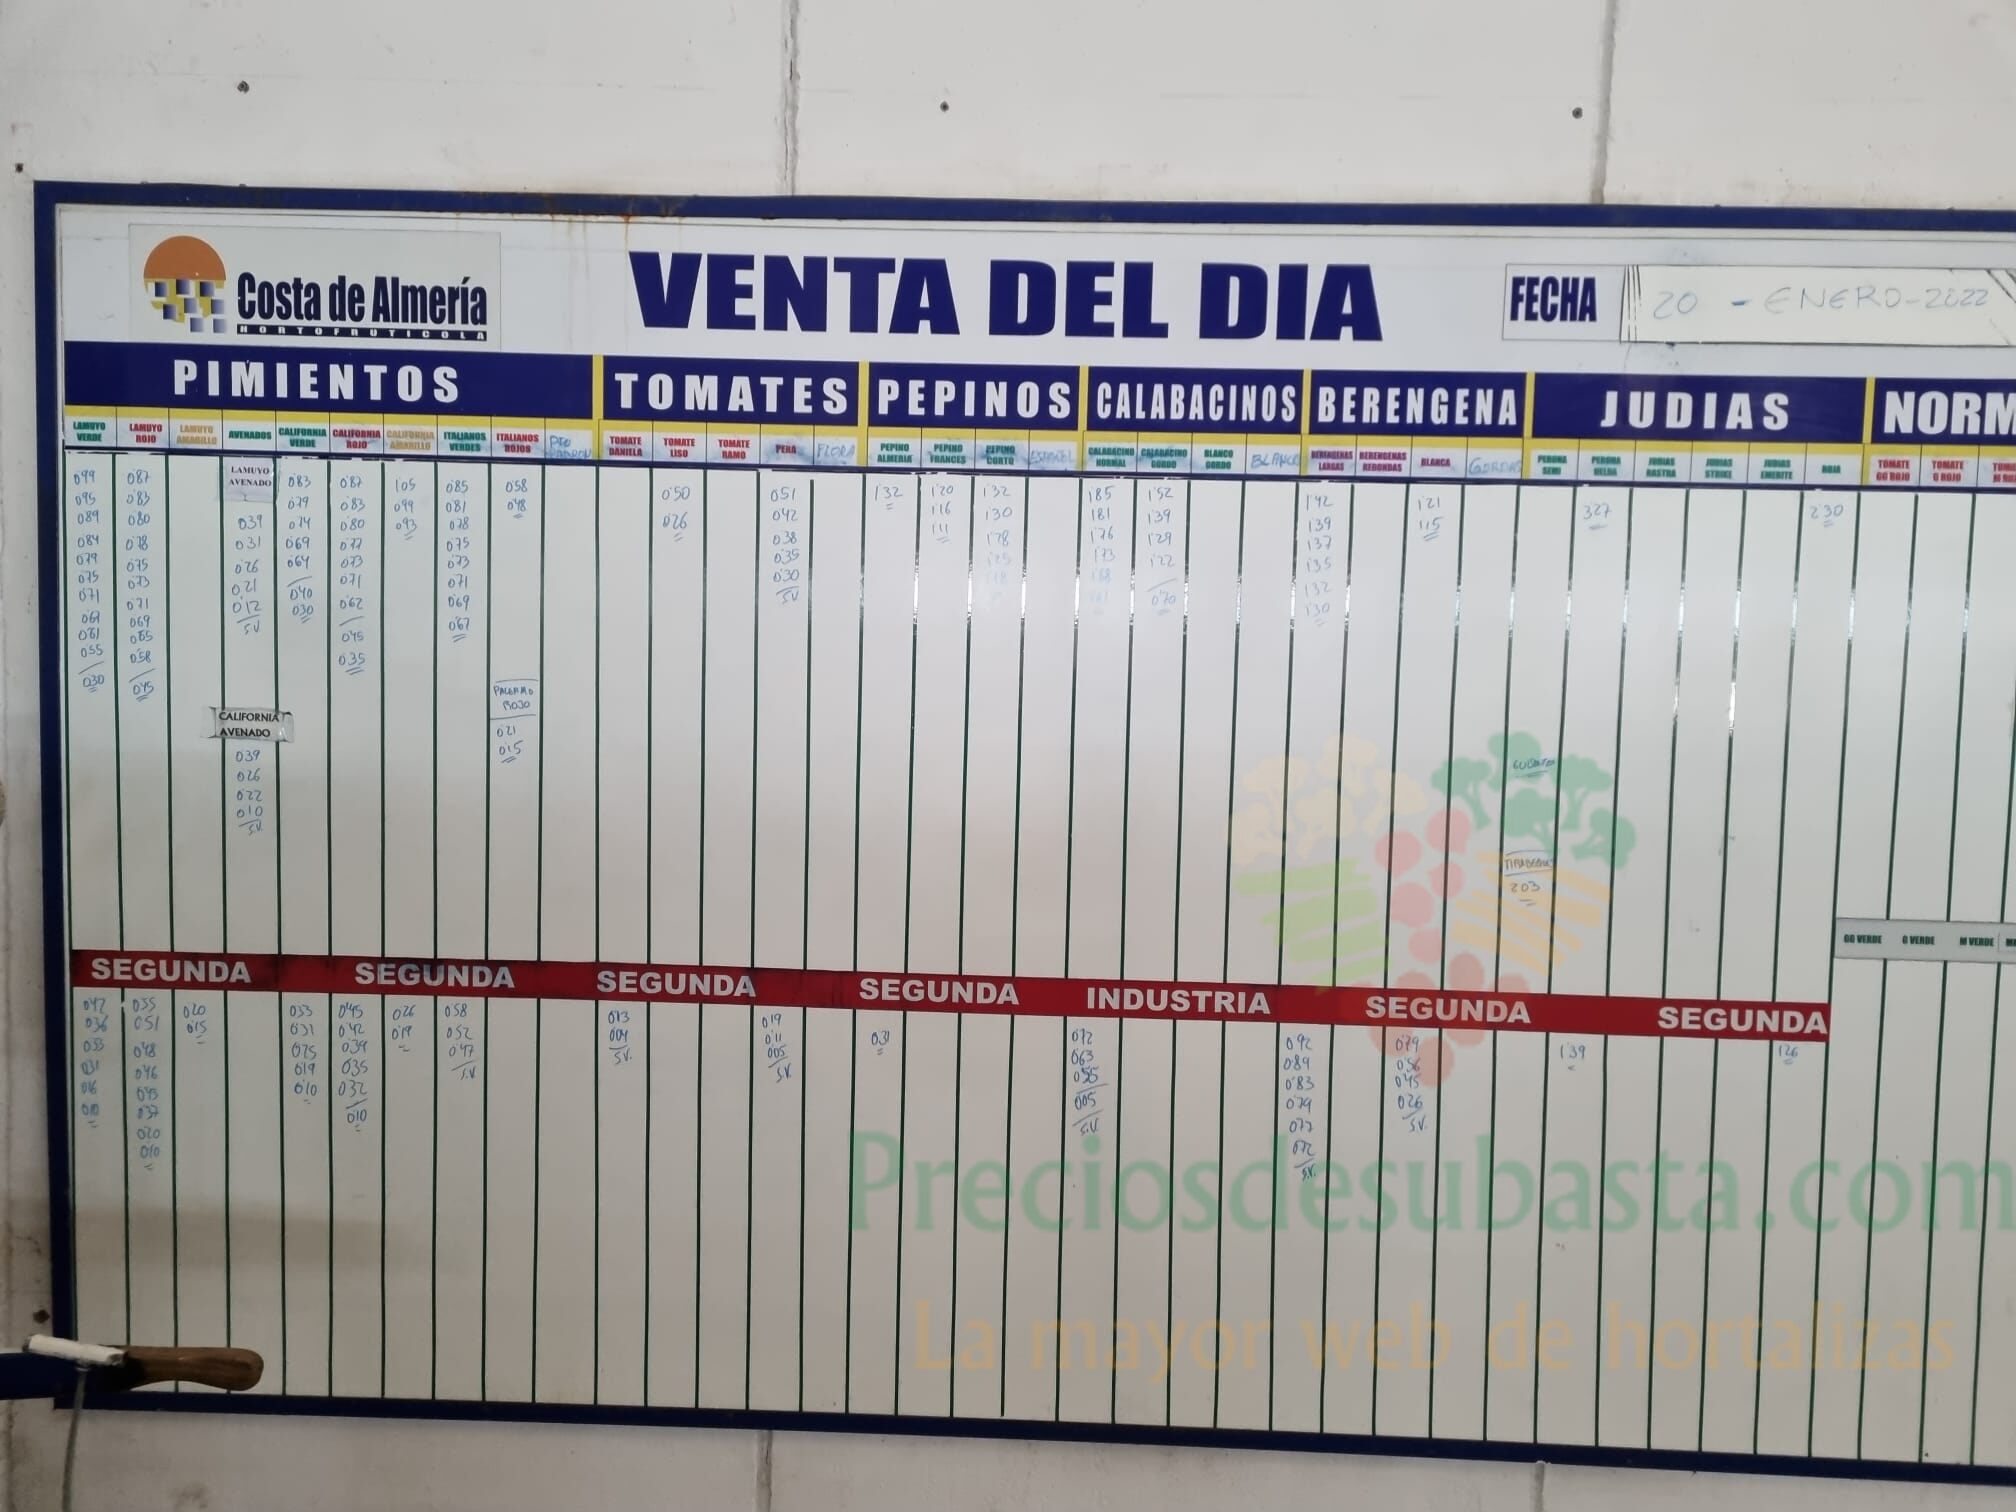 Costa de Almería
HORTOFRUTICOLA
VENTA DEL DIA
FECHA 20 - ENERO - 2022
PIMIENTOS TOMATES PEPINOS CALABACINOS BERENGENA JUDIAS NORM
LAMUYO VERDE
LAMUYO ROJO
LAMUYO AMARILLO
AVENADOS
CALIFORNIA VERDE
CALIFORNIA ROJO
CALIFORNIA AMARILLO
ITALIANOS VERDES
ITALIANOS ROJOS
TOMATE DANIELA
TOMATE LISO
TOMATE RAMO
PERA
FLORA
PEPINO ALMERIA
PEPINO FRANCES
PEPINO CORTO
ESPAÑOL
CALABACINO NORMAL
CALABACINO GORDO
BLANCO GORDO
BLANCO
BERENGENAS LARGAS
BERENGENAS REDONDAS
BLANCA
GORDAS
PERONA SEMI
PERONA HELDA
JUDIAS RASTRA
JUDIAS STRIKE
JUDIAS EMERITE
ROJA
TOMATE GG ROJO
TOMATE G ROJO
0'99
0'95
0'89
0'84
0'79
0'75
0'71
0'61
0'55
0'30
0'87
0'83
0'80
0'78
0'75
0'73
0'71
0'69
0'65
0'58
0'45
LAMUYO
AVENADO
0'39
0'31
0'26
0'21
0'12
S.V.
CALIFORNIA
AVENADO
0'39
0'26
0'22
0'10
S.V.
0'83
0'79
0'74
0'69
0'64
0'40
0'30
0'87
0'83
0'80
0'77
0'73
0'71
0'62
0'45
0'35
1'05
0'99
0'93
0'85
0'81
0'78
0'75
0'73
0'71
0'69
0'67
0'58
0'48
PALERMO
ROJO
0'21
0'15
0'50
0'26
0'51
0'42
0'38
0'35
0'30
S.V.
1'32
1'20
1'16
1'11
1'32
1'30
1'28
1'25
1'85
1'81
1'76
1'73
1'68
1'52
1'39
1'29
1'22
0'70
1'42
1'39
1'37
1'35
1'32
1'30
1'21
1'15
3'27
2'30
TIRABEQUE
2'03
GG VERDE G VERDE M VERDE
SEGUNDA SEGUNDA SEGUNDA SEGUNDA INDUSTRIA SEGUNDA SEGUNDA
0'42
0'36
0'33
0'31
0'16
0'10
0'55
0'51
0'48
0'46
0'43
0'37
0'20
0'10
0'20
0'15
0'33
0'31
0'25
0'19
0'10
0'45
0'42
0'39
0'35
0'32
0'10
0'26
0'19
0'58
0'52
0'47
S.V.
0'13
0'09
S.V.
0'19
0'11
0'05
S.V.
0'31
0'72
0'63
0'55
0'05
S.V.
0'92
0'89
0'83
0'79
0'77
0'72
S.V.
0'79
0'56
0'45
0'26
S.V.
1'39
1'26
Preciosdesubasta.com
La mayor web de hortalizas